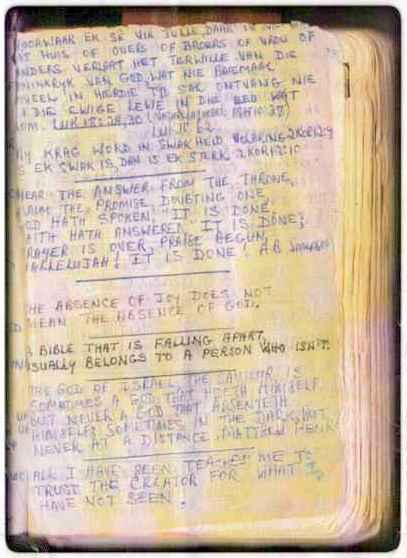 VOORWAAR EK SÊ VIR JULLE, DAAR IS
HUIS OF OUERS OF BROERS OF VROU OF
KINDERS VERLAAT HET TERWILLE VAN DIE
KONINKRYK VAN GOD, WAT NIE BAIEMAAL
SOVEEL IN HIERDIE TYD SAL ONTVANG NIE
DIE EWIGE LEWE IN DIE EEU WAT
KOM. LUK 18:28,30
LUK 9:62
MY KRAG WORD IN SWAKHEID VOLBRING 2KOR12:9
AS EK SWAK IS, DAN IS EK STERK 2KOR12:10
HEAR THE ANSWER FROM THE THRONE,
CLAIM THE PROMISE DOUBTING ONE,
GOD HATH SPOKEN "IT IS DONE"
FAITH HATH ANSWERED IT IS DONE;
PRAYER IS OVER, PRAISE BEGUN,
HALLELUJAH! IT IS DONE! AB
THE ABSENCE OF JOY DOES NOT
MEAN THE ABSENCE OF GOD.
A BIBLE THAT IS FALLING APART,
USUALLY BELONGS TO A PERSON WHO ISN'T.
THE GOD OF ISRAEL, THE SAVIOUR IS
SOMETIMES A GOD THAT HIDETH HIMSELF
BUT NEVER A GOD THAT ABSENTETH
HIMSELF; SOMETIMES IN THE DARK, BUT
NEVER AT A DISTANCE. MATTHEW HENRY
ALL I HAVE SEEN TEACHES ME TO
TRUST THE CREATOR FOR WHAT I
HAVE NOT SEEN.